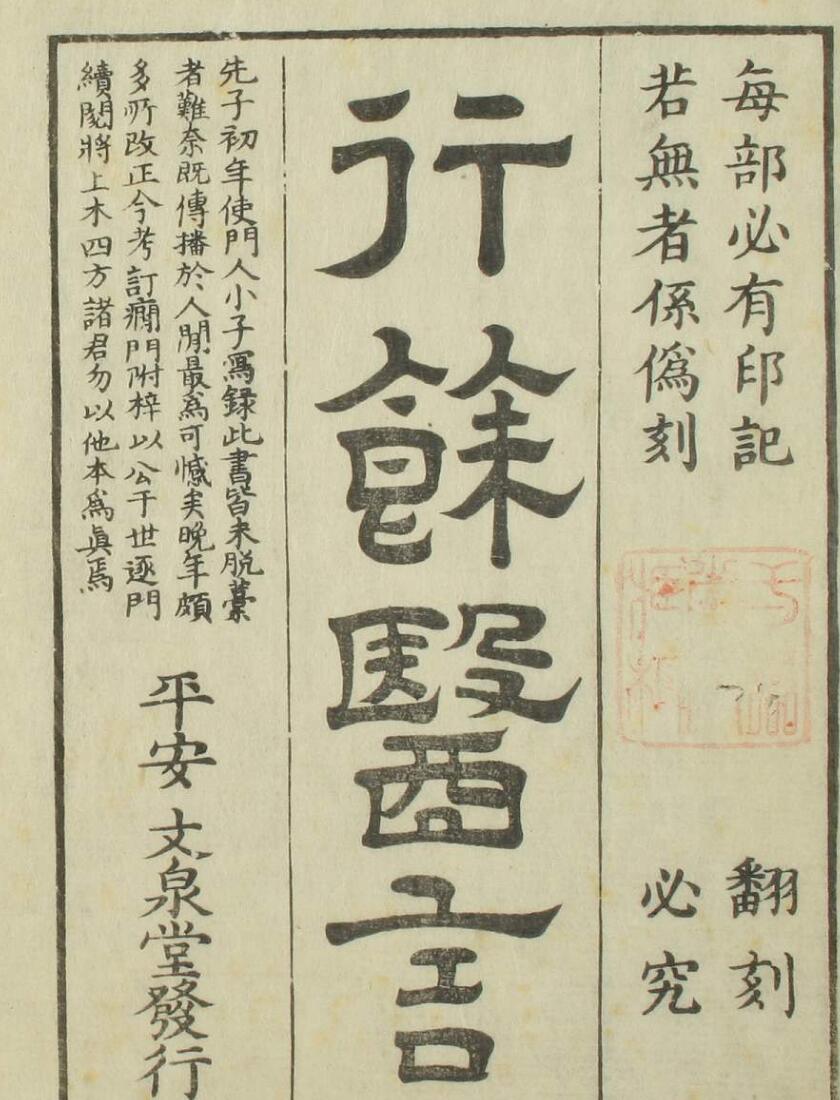 每部必有印記
若無者係僞刻
翻刻
必究
行餘醫言
先子初年使門人小子寫録此書皆未脱藁
者難奈既傳播於人間最爲可憾矣晚年頗
多所改正今考訂癇門附梓以公于世逐門
續閲將上木四方諸君勿以他本爲眞焉
平安 文泉堂發行